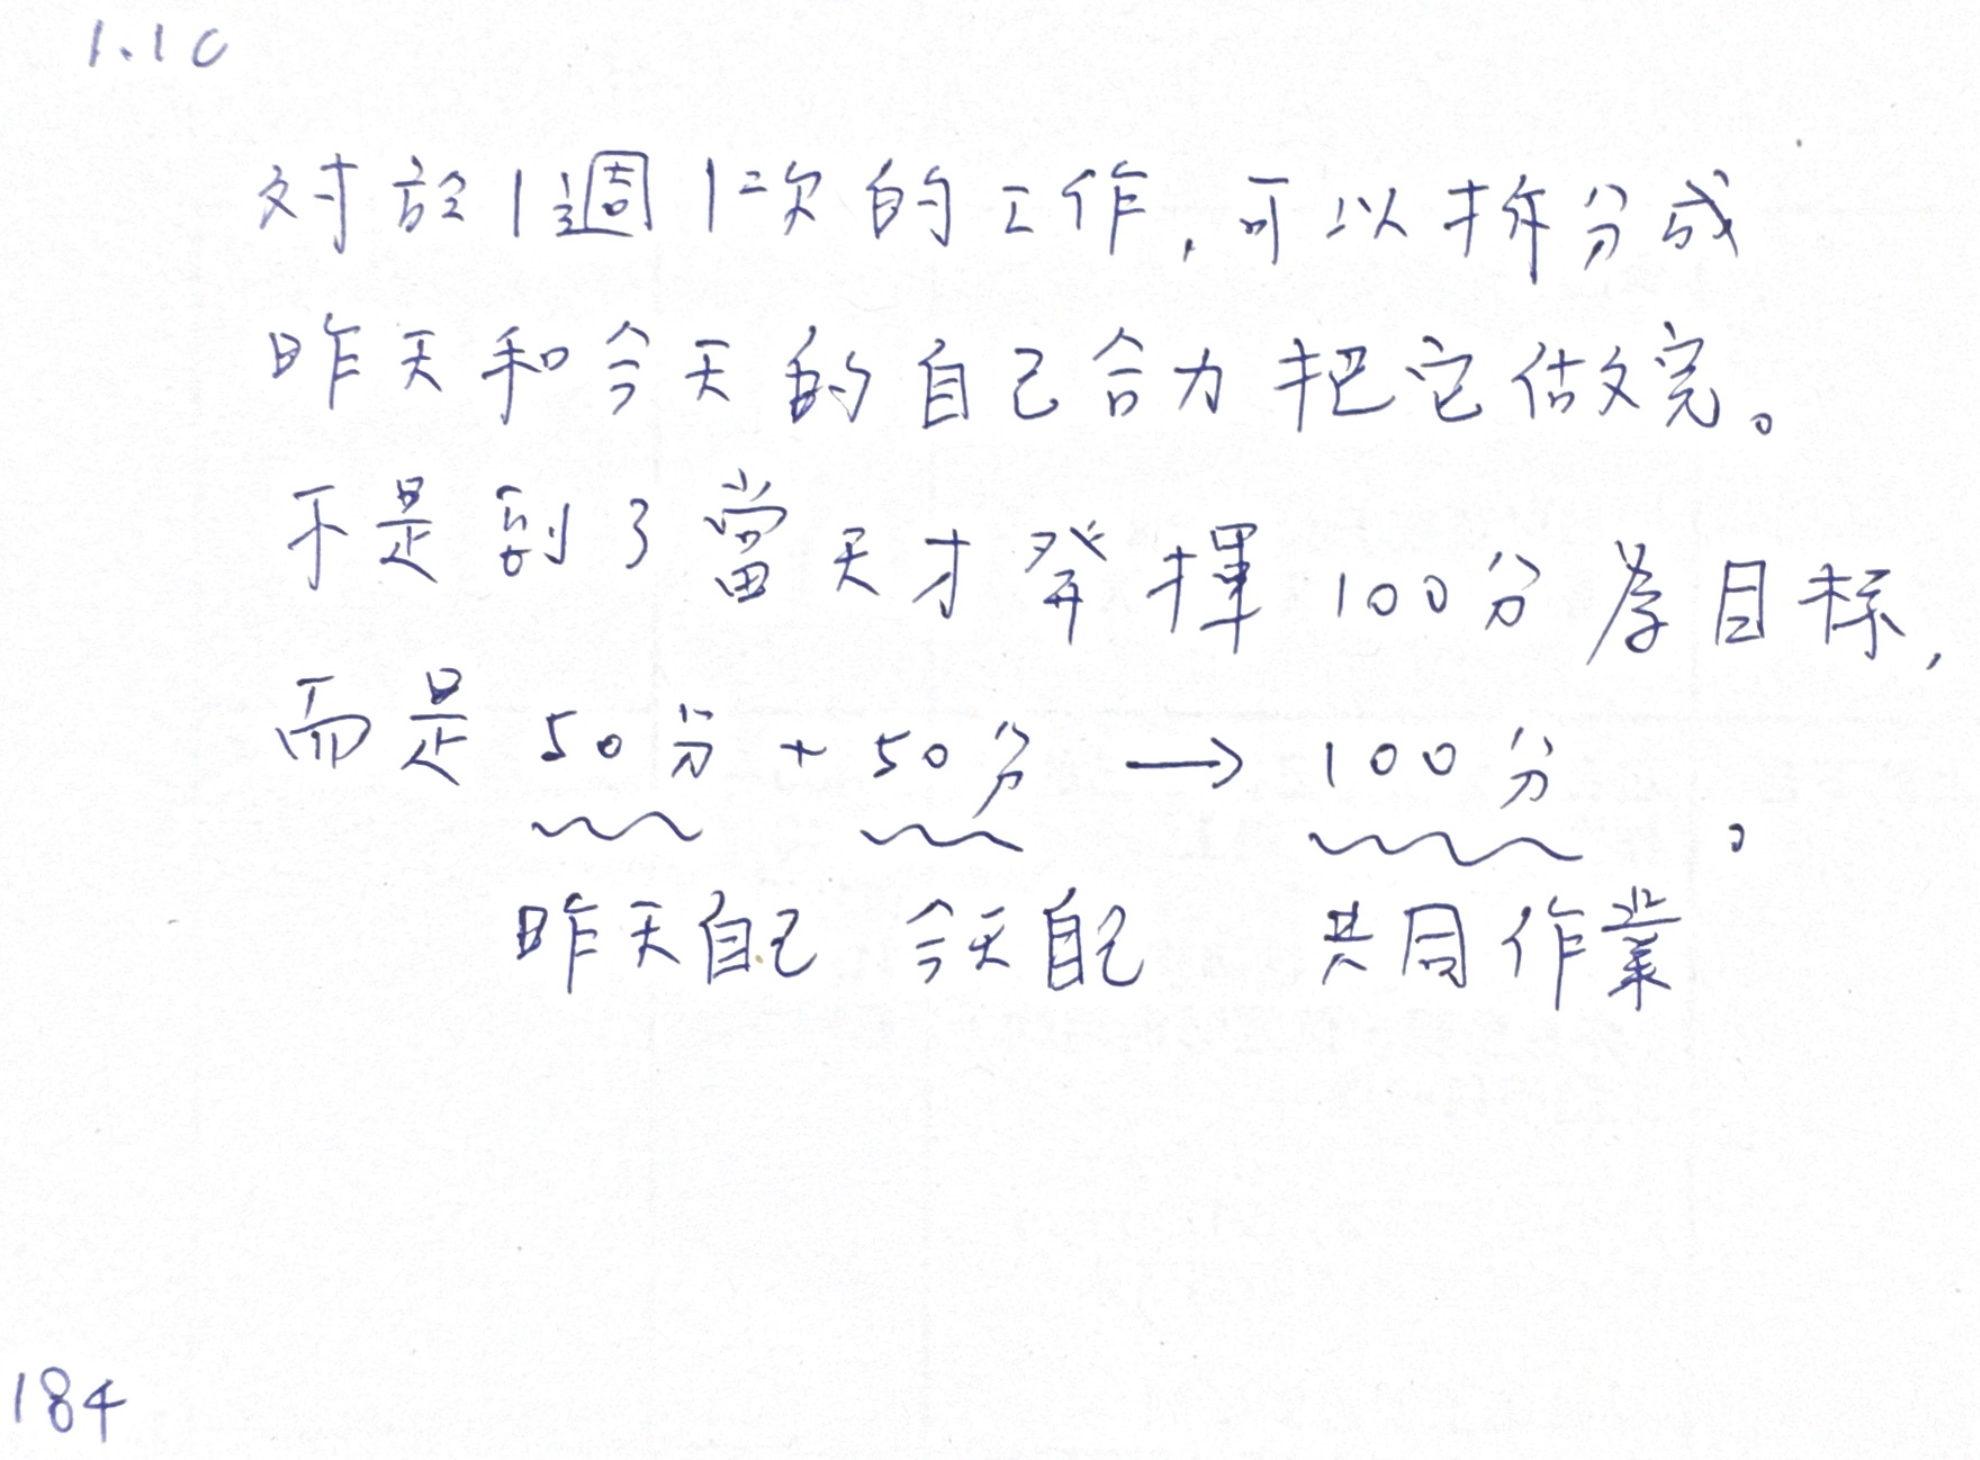 1.10
对於1週1次的工作,可以拆分成
昨天和今天的自己合力把它做完。
不是到了當天才発揮100分為目标,
而是50分+50分→100分。
昨天自己 今天自己 共同作業
184